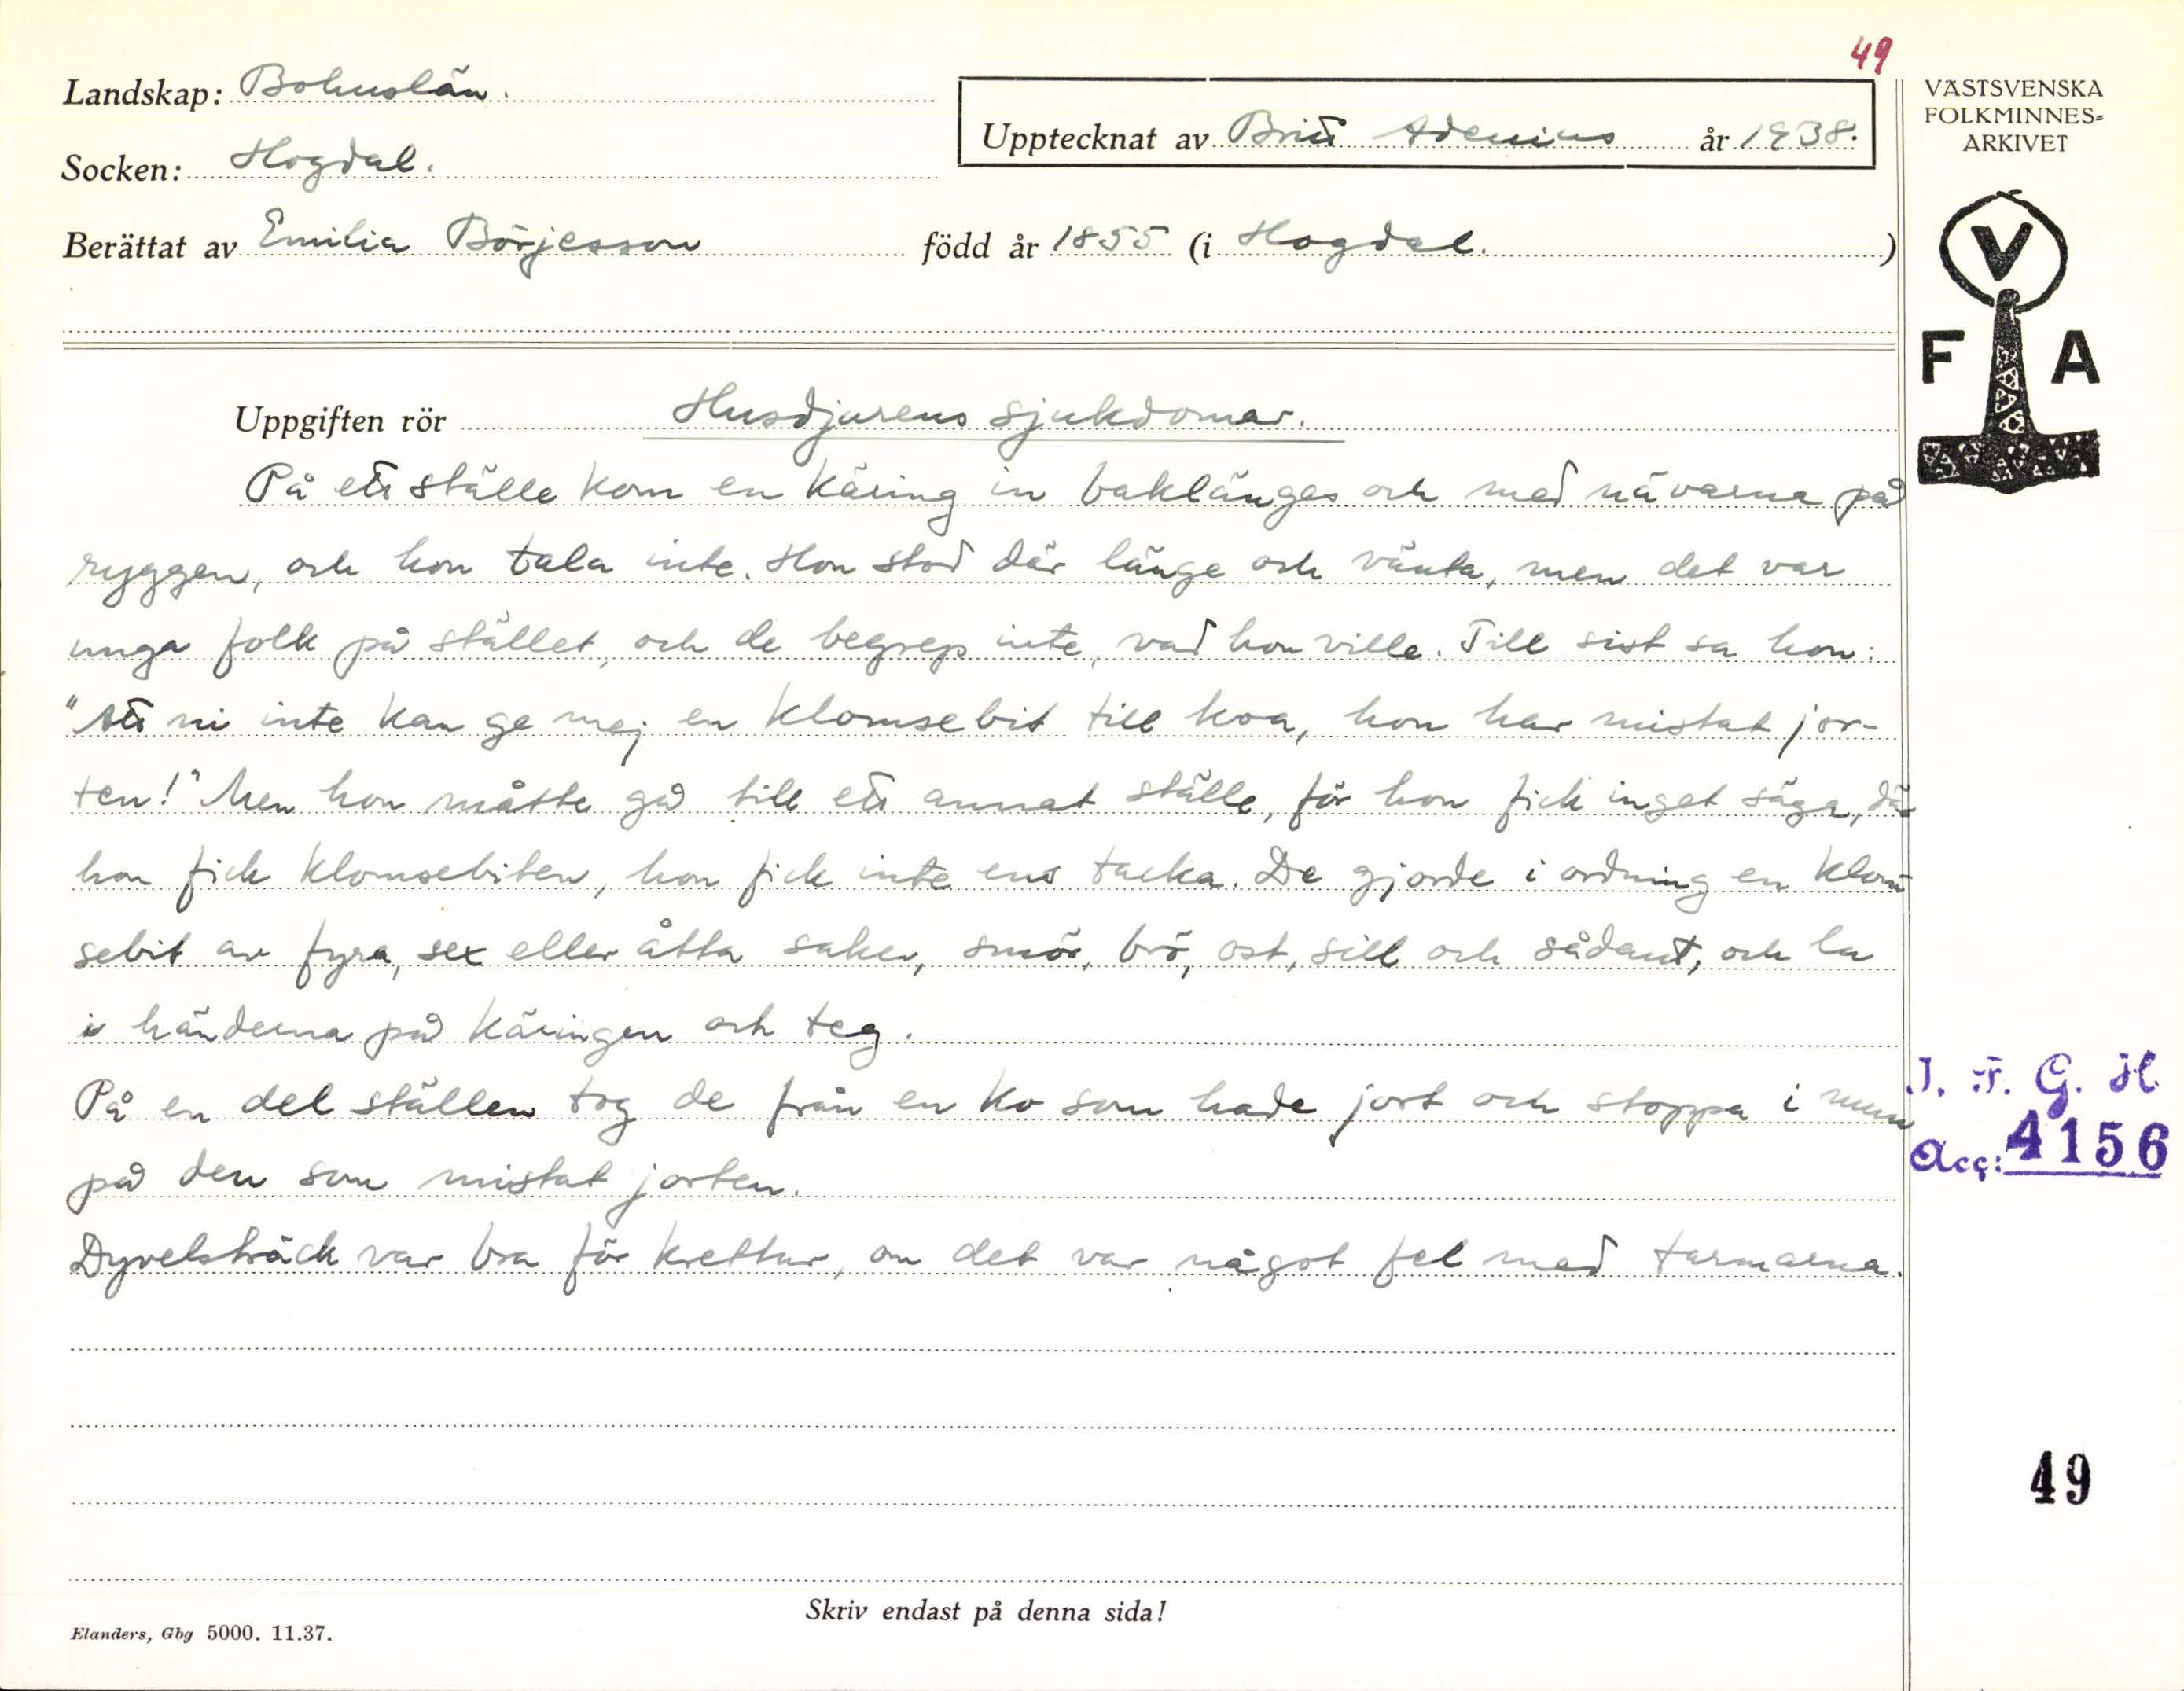 49
Landskap: Bohuslän.
Upptecknat av Britt Adenius år 1938.
Socken: Hogdal.
Berättat av Emilia Börjesson född år 1855 (i Hogdal.)
VÄSTSVENSKA
FOLKMINNES-
ARKIVET
V
F A
Uppgiften rör Husdjurens sjukdomar.
På ett ställe kom en käring in baklänges och med nävarna på
ryggen, och hon tala inte. Hon stod där länge och vänta, men det var
unga folk på stället, och de begrep inte, vad hon ville. Till sist sa hon:
"Att ni inte kan ge mej en klomsebit till koa, hon har mistat jor-
ten!" Men hon måtte gå till ett annat ställe, för hon fick inget säga, då
hon fick klomsebiten, hon fick inte ens tacka. De gjorde i ordning en klom
sebit av fyra, sex eller åtta saker, smör, brö, ost, sill och sådant, och la
i händerna på käringen och teg.
På en del ställen tog de från en ko som hade jort och stoppa i mun
på den som mistat jorten.
Dyvelsträck var bra för krettur, om det var något fel med tarmarna.
I. F. G. H.
Acc: 4156
49
Skriv endast på denna sida!
Elanders, Gbg 5000. 11.37.